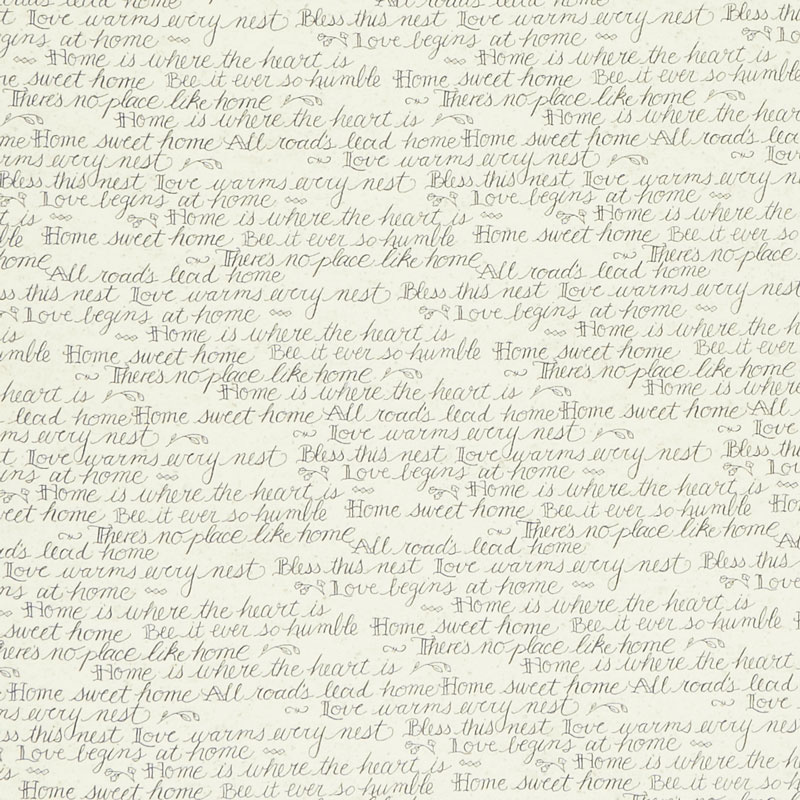 All road's lead home All road's lead home
Love warms every nest Bless this nest Love warms every nest Bless this
begins at home Love begins at home
Home is where the heart is Home is where the heart is
sweet home Bee it ever so humble Home sweet home Bee it ever so humble
There's no place like home There's no place like home
Home is where the heart is Home is where the hear
me Home sweet home All road's lead home Home sweet home All road's lea
rms every nest Love warms every nest Lov
Bless this nest Love warms every nest Bless this nest Love warms every n
Love begins at home Love begins at home
t is Home is where the heart is Home is where the
ble Home sweet home Bee it ever so humble Home sweet home Bee it ever so
home There's no place like home There's no place
All road's lead home All road's lead home
ss this nest Love warms every nest Bless this nest Love warms every nest
Love begins at home Love begins at home
is Home is where the heart is Home is where the h
umble Home sweet home Bee it ever so humble Home sweet home Bee it ever
There's no place like home There's no place like home
heart is Home is where the heart is Home is where
lead home Home sweet home All road's lead home Home sweet home All
ms every nest Love warms every nest Love
t Love warms every nest Bless this nest Love warms every nest Bless th
ins at home Love begins at home Lo
Home is where the heart is Home is where the heart is
eet home Bee it ever so humble Home sweet home Bee it ever so humble
There's no place like home There's no place like home
ad's lead home All road's lead home All
Love warms every nest Bless this nest Love warms every nest Bless this
ns at home Love begins at home Love
Home is where the heart is Home is where the heart is
sweet home Bee it ever so humble Home sweet home Bee it ever so humble
here's no place like home There's no place like home
Home is where the heart is Home is where the heart
Home sweet home All road's lead home Home sweet home All road's lead
ns every nest Love warms every nest Love
ss this nest Love warms every nest Bless this nest Love warms every nes
Love begins at home Love begins at home
is Home is where the heart is Home is where the h
Home sweet home Bee it ever so humble Home sweet home Bee it ever